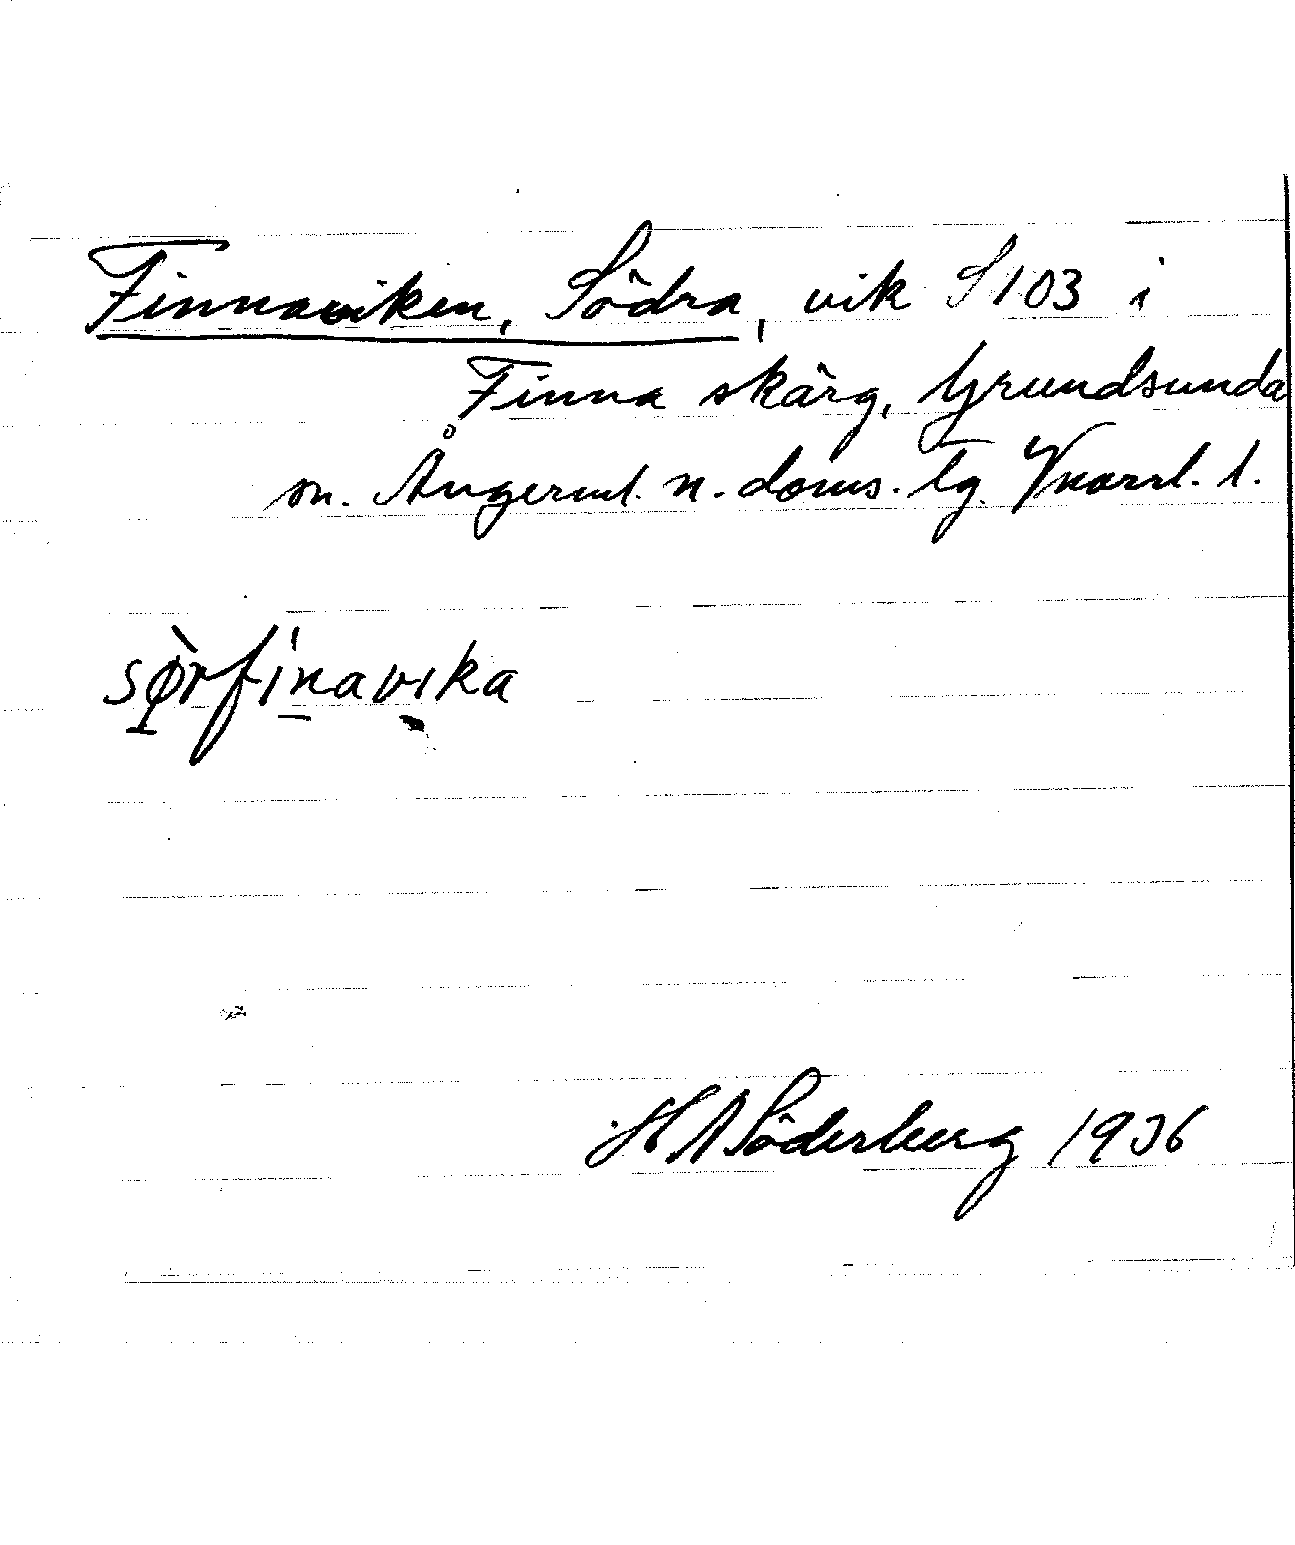 Finnaviken, Södra, vik S 103 i
Finna skärg, Grundsunda
sn. Ångerml. n. doms. lg. Vnorrl. l.
sørfinavika
H A Söderberg 1936